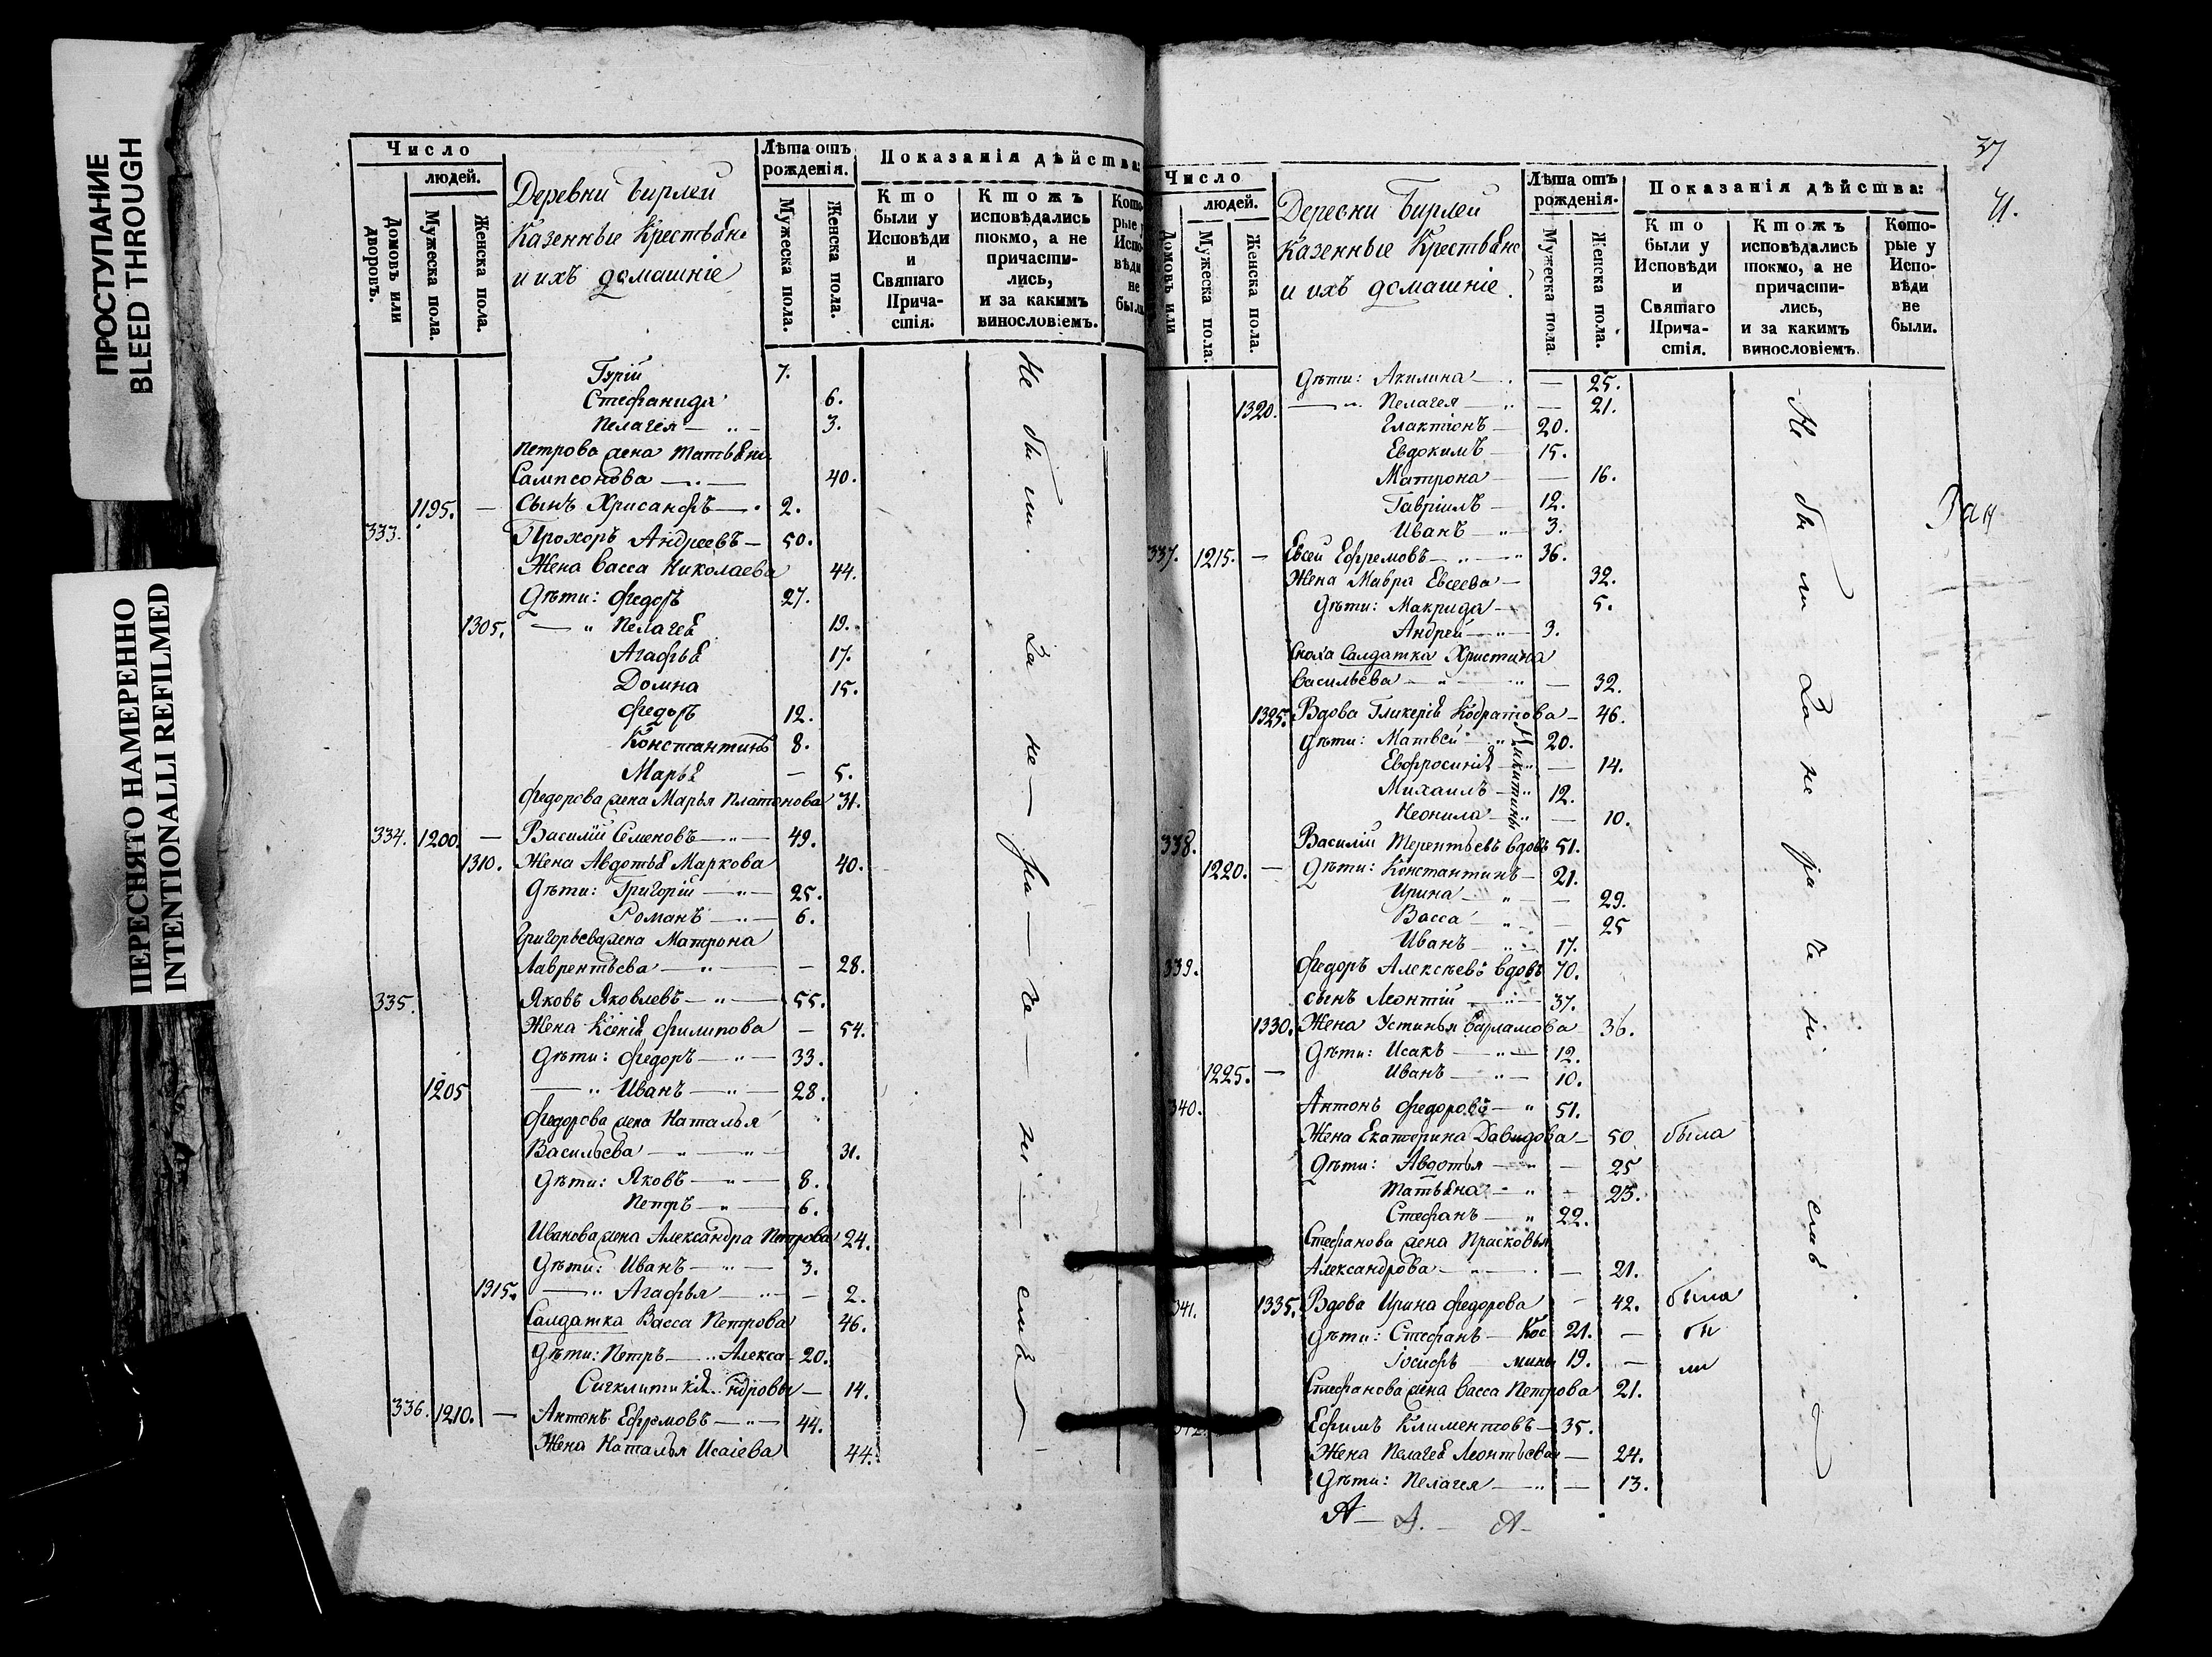 ПРОСТУПАНИЕ
BLEED THROUGH
ПЕРЕСНЯТО НАМЕРЕННО
INTENTIONALLI REFILMED
Число
людей.
Домовъ или дворовъ.
Мужеска пола.
Женска пола.
Деревни Бирлей
Казенные Крестьяне
и ихъ домашніе
Лѣта отъ рожденія.
Мужеска пола.
Женска пола.
Показанія дѣйства:
Кто были у Исповѣди и Святаго Прича-стія.
Ктожъ исповѣдались токмо, а не причасти-лись, и за какимъ винословіемъ.
Кото-рые у Испо-вѣди не были.
Гурій 7.
Стефанида 6.
Пелагея 3.
Петрова жена Татьяна
Сампсонова 40.
1195. — Сынъ Хрисанфъ 2.
333. Прохоръ Андреевъ 50.
Жена Васса Николаева 44.
Дѣти: Федоръ 27.
1305. — " Пелагея 19.
Агафья 17.
Домна 15.
Федоръ 12.
Константинъ 8.
Марья — 5.
Федорова жена Марья Платонова 31.
334. 1200. — Василій Семеновъ 49.
1310. Жена Авдотья Маркова 40.
Дѣти: Григорій 25.
Романъ 6.
Григорьева жена Матрона
Лаврентьева — 28.
335. Яковъ Яковлевъ 55.
Жена Ксенія Филипова — 54.
Дѣти: Федоръ 33.
1205 — " Иванъ 28.
Федорова жена Наталья
Васильева 31.
Дѣти: Яковъ 8.
Петръ 6.
Иванова жена Александра Петрова 24.
Дѣти: Иванъ 3.
1315. — " Агафья — 2.
Салдатка Васса Петрова 46.
Дѣти: Петръ — Алекса- 20.
Сигклитикія ндровы — 14.
336. 1210. — Антонъ Ефремовъ 44.
Жена Наталья Исаіева 44.
Не были За не — ра — че — ні — емъ
37
Число
людей.
Домовъ или
Мужеска пола.
Женска пола.
Деревни Бирлей
Казенные Крестьяне
и ихъ домашніе.
Лѣта отъ рожденія.
Мужеска пола
Женска пола.
Показанія дѣйства:
Кто были у Исповѣди и Святаго Прича-стія.
Ктожъ исповѣдались токмо, а не причасти-лись, и за какимъ винословіемъ.
Кото-рые у Испо-вѣди не были.
Дѣти: Акилина — 25.
1320. — " Пелагея — 21.
Глактіонъ 20.
Евдокимъ 15.
Матрона — 16.
Гавріилъ 12.
Иванъ 3.
337. 1215. — Евсей Ефремовъ 36.
Жена Мавра Евсеева 32.
Дѣти: Макрида 5.
Андрей 3.
Сноха Салдатка Христина
Васильева — 32.
1325. Вдова Гликерія Кодратова 46.
Дѣти: Матвей 20.
Евфросинія — 14.
Михаилъ 12.
Неонила — 10.
Никитины
338. Василій Терентьевъ вдовъ 51.
1220. — Дѣти: Константинъ 21.
Ирина — 29.
Васса — 25
Иванъ 17.
339. Федоръ Алексѣевъ вдовъ 70.
сынъ Леонтій 37.
1330. Жена Устинья Варламова 36.
Дѣти: Исакъ 12.
1225. — Иванъ 10.
340. Антонъ Федоровъ 51.
Жена Екатерина Давидова 50 была
Дѣти: Авдотья — 25
Татьяна — 23.
Стефанъ 22.
Стефанова жена Прасковья
Александрова — 21.
341. 1335. Вдова Ирина Федорова — 42. была
Дѣти: Стефанъ — Кос 21. — бы
Іосифъ мины 19. — ли
Стефанова жена Васса Петрова 21.
342. Ефимъ Климентовъ 35.
Жена Пелагея Леонтьева — 24.
Дѣти: Пелагея — 13.
Не были За не ра че ні емъ